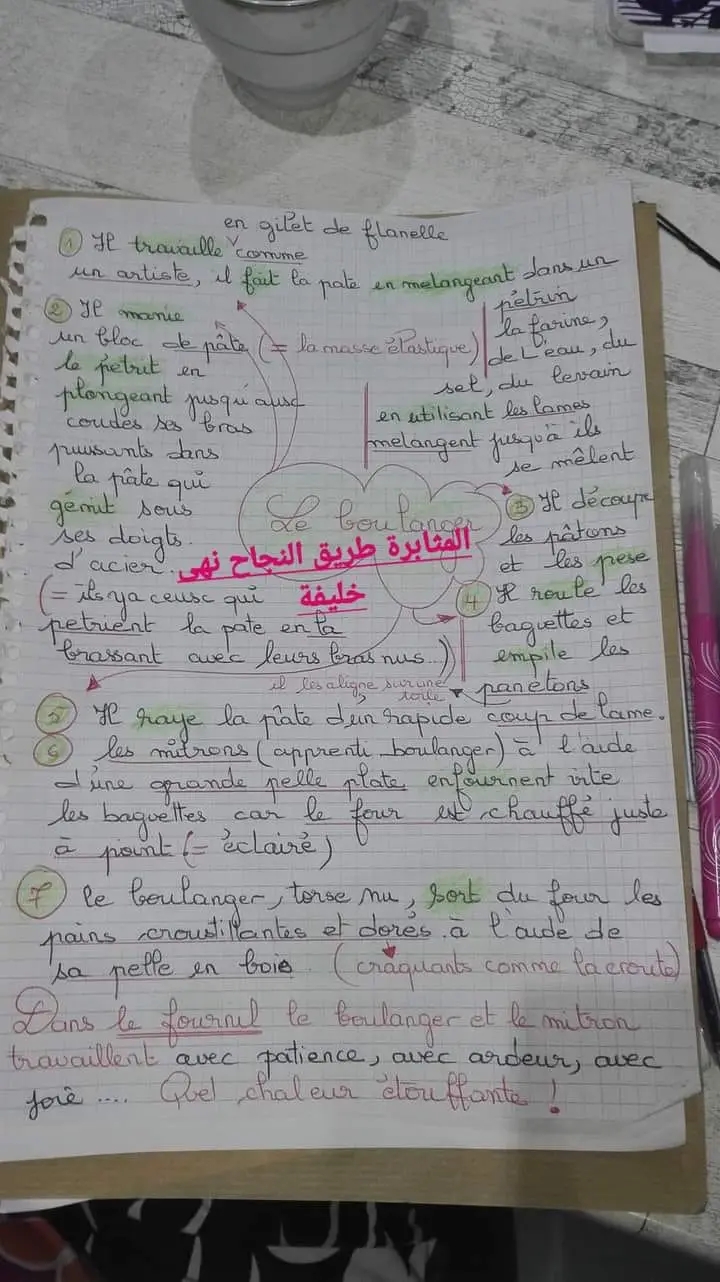 en gilet de flanelle
① Il travaille comme
un artiste, il fait la pate en melangeant dans un
pétrin
la farine,
de L'eau, du
sel, du levain
en utilisant les lames
melangent jusqu'à ils
se mêlent
② Il manie
un bloc de pâte (= la masse élastique)
le petrit en
plongeant jusqu'aux
coudes ses bras
puissants dans
la pâte qui
gémit sous
ses doigts
d'acier.
(= ils ya ceux qui
petrient la pate en la
brassant avec leurs bras nus...)
Le boulanger
المثابرة طريق النجاح نهى
خليفة
③ Il découpe
les pâtons
et les pese
④ Il roule les
baguettes et
empile les
panetons
il les aligne sur une
toile
⑤ Il raye la pâte d'un rapide coup de lame.
⑥ les mitrons (apprenti boulanger) à l'aide
d'une grande pelle plate enfournent vite
les baguettes car le four est chauffé juste
à point (= éclairé)
⑦ le boulanger, torse nu, sort du four les
pains croustillantes et dorés à l'aide de
sa pelle en bois. (craquants comme la croute)
Dans le fournil le boulanger et le mitron
travaillent avec patience, avec ardeur, avec
joie .... Quel chaleur étouffante !